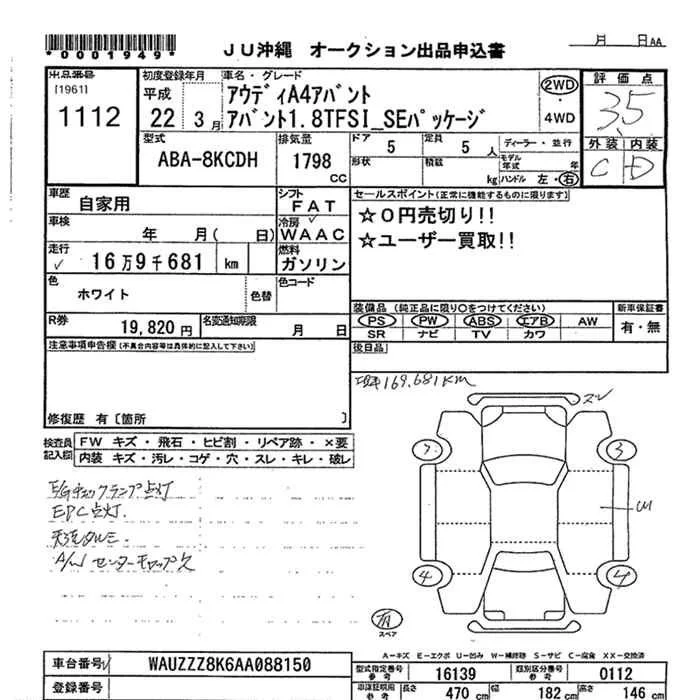 *0001949*
JU沖縄 オークション出品申込書
月 日AA
出品番号
[1961]
1112
初度登録年月
平成
22 3月
車名・グレード
アウディA4アバント
アバント1.8TFSI_SEパッケージ
2WD
・
4WD
評価点
3.5
外装 内装
C D
型式
ABA-8KCDH
排気量
1798
CC
ドア
5
定員
5 人
形状
積載
kg
ディーラー・並行
モデル年式 年
ハンドル 左・右
車歴
自家用
シフト
FAT
セールスポイント(正常に機能するものに限ります)
☆0円売切り!!
☆ユーザー買取!!
車検
年 月( 日)
冷房
WAAC
走行
16万9千681 km
燃料
ガソリン
色
ホワイト
色替
色コード
R券
19,820 円
名変通知期限
月 日
装備品(純正品に限り○をつけてください)
PS PW ABS エアB AW
SR ナビ TV カワ
新車保証書
有・無
注意事項申告欄(不具合内容等は具体的に記入して下さい)
後日品
修復歴 有〔箇所 〕
169,681KM
検査員記入欄
FW キズ・飛石・ヒビ割・リペア跡・×要
内装 キズ・汚レ・コゲ・穴・スレ・キレ・破レ
E/Gチェックランプ点灯
EPC点灯.
天張タルミ.
A/W センターキャップ欠
スレ
3
4
スペア
A-キズ E-エクボ U-凹み W-補修跡 S-サビ C-腐食 XX-交換済
車台番号
WAUZZZ8K6AA088150
登録番号
型式指定番号
参考
16139
類別区分番号
参考
0112
車庫証明用
参考
長さ
470 cm
幅
182 cm
高さ
146 cm